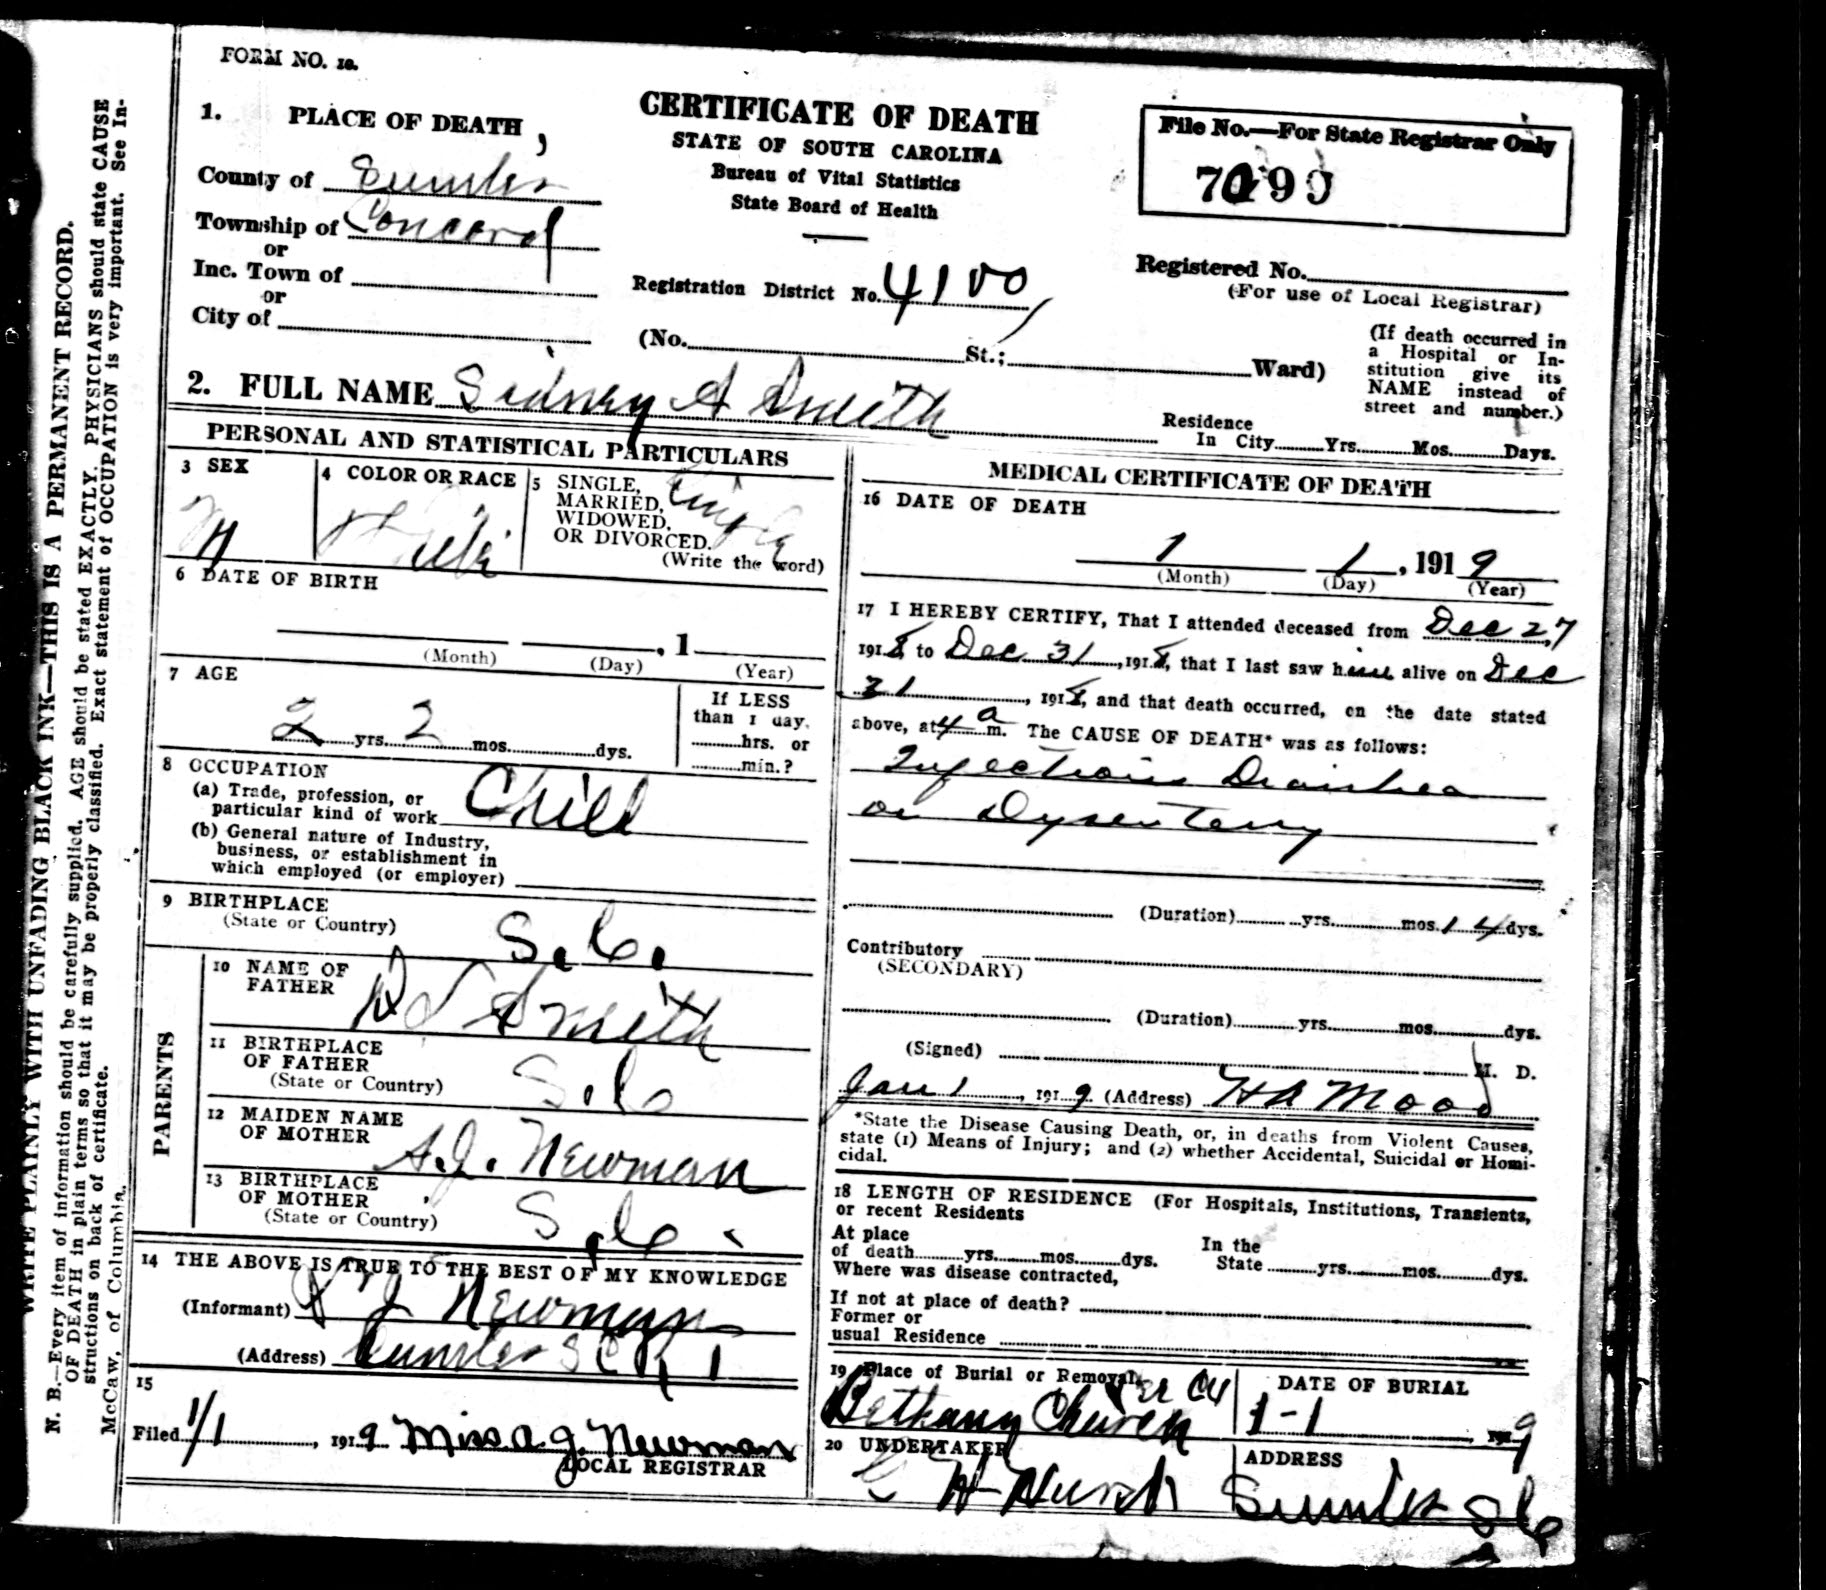 FORM NO. 10.
CERTIFICATE OF DEATH
STATE OF SOUTH CAROLINA
Bureau of Vital Statistics
State Board of Health
File No.—For State Registrar Only
1. PLACE OF DEATH,
County of Sumter
Township of Concord
or
Inc. Town of
or
City of
Registration District No. 4100
Registered No.
(For use of Local Registrar)
(No. St.; Ward)
(If death occurred in
a Hospital or In-
stitution give its
NAME instead of
street and number.)
2. FULL NAME Sidney A Smith
Residence
In City Yrs. Mos. Days.
PERSONAL AND STATISTICAL PARTICULARS
3 SEX
M
4 COLOR OR RACE
5 SINGLE,
MARRIED,
WIDOWED,
OR DIVORCED.
(Write the word)
Single
6 DATE OF BIRTH
, 1
(Month) (Day) (Year)
7 AGE
2 yrs. 2 mos. dys.
If LESS
than 1 day,
hrs. or
min.?
8 OCCUPATION
(a) Trade, profession, or
particular kind of work Child
(b) General nature of Industry,
business, or establishment in
which employed (or employer)
9 BIRTHPLACE
(State or Country) S.C.
PARENTS
10 NAME OF
FATHER Smith
11 BIRTHPLACE
OF FATHER
(State or Country) S.C
12 MAIDEN NAME
OF MOTHER A.J. Newman
13 BIRTHPLACE
OF MOTHER
(State or Country) S.C.
14 THE ABOVE IS TRUE TO THE BEST OF MY KNOWLEDGE
(Informant) A J Newman
(Address) Sumter S C R 1
15
Filed 1/1, 1919 Miss A. J. Newman
LOCAL REGISTRAR
MEDICAL CERTIFICATE OF DEATH
16 DATE OF DEATH
1 1, 1919
(Month) (Day) (Year)
17 I HEREBY CERTIFY, That I attended deceased from Dec 27
1918, to Dec 31, 1918, that I last saw him alive on Dec
31, 1918, and that death occurred, on the date stated
above, at 4 a m. The CAUSE OF DEATH* was as follows:
Infectious Diarrhea
or Dysentery
(Duration) yrs. mos. 14 dys.
Contributory
(SECONDARY)
(Duration) yrs. mos. dys.
(Signed) M. D.
Jan 1, 1919 (Address) H A Mood
*State the Disease Causing Death, or, in deaths from Violent Causes,
state (1) Means of Injury; and (2) whether Accidental, Suicidal or Homi-
cidal.
18 LENGTH OF RESIDENCE (For Hospitals, Institutions, Transients,
or recent Residents
At place
of death yrs. mos. dys.
In the
State yrs. mos. dys.
Where was disease contracted,
If not at place of death?
Former or
usual Residence
19 Place of Burial or Removal
Bethany Church
DATE OF BURIAL
1-1 1919
20 UNDERTAKER
ADDRESS
Sumter S C
WRITE PLAINLY WITH UNFADING BLACK INK—THIS IS A PERMANENT RECORD.
N. B.—Every item of information should be carefully supplied. AGE should be stated EXACTLY. PHYSICIANS should state CAUSE
OF DEATH in plain terms so that it may be properly classified. Exact statement of OCCUPATION is very important. See In-
structions on back of certificate.
McCaw, of Columbia.